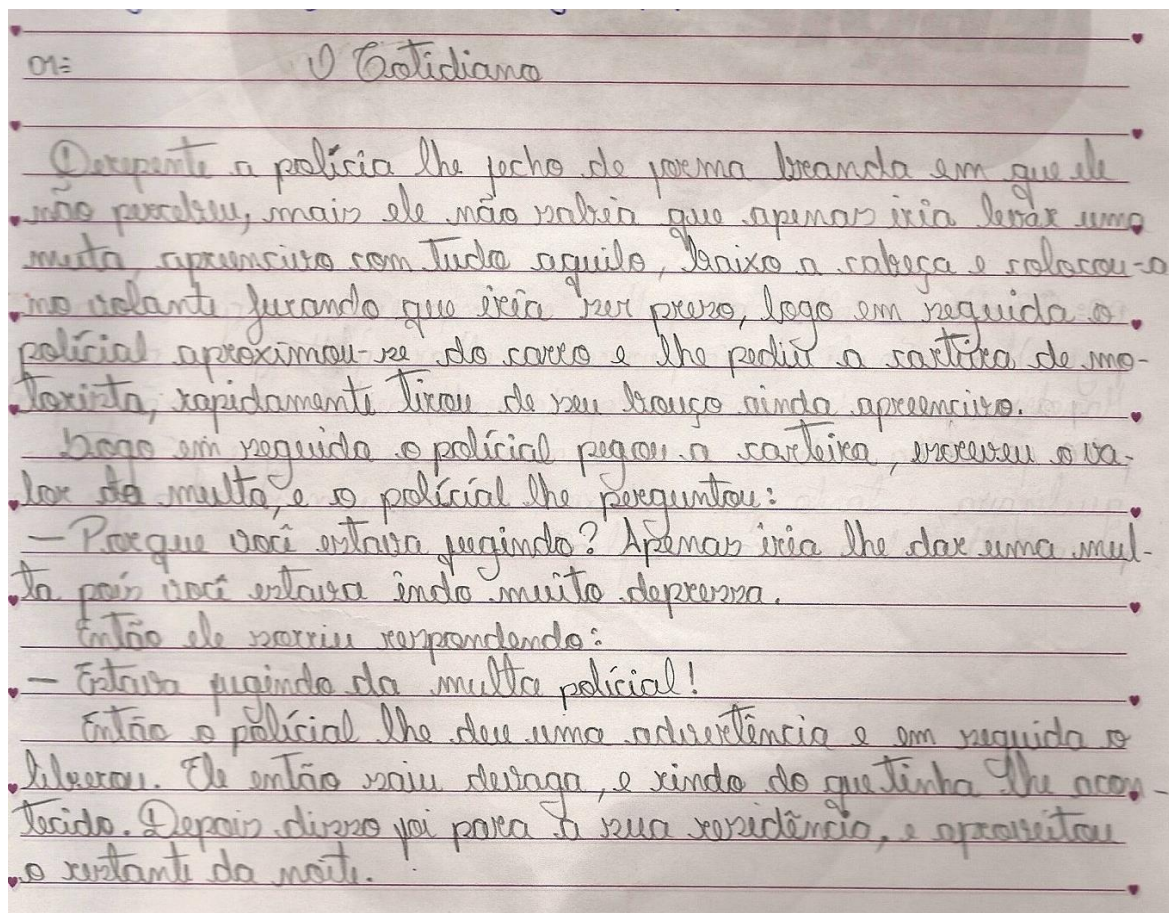 01= O Cotidiano
Derepente a polícia lhe fecho de forma branda em que ele
não percebeu, mais ele não sabia que apenas iria levar uma
multa, apreencivo com tudo aquilo, baixo a cabeça e colocou-a
no volante jurando que iria ser preso, logo em seguida o
polícial aproximou-se do carro e lhe pediu a cartira de mo-
torista, rapidamente tirou de seu bouço ainda apreencivo.
Logo em seguida o polícial pegou a carteira, escreveu o va-
lor da multa, e o polícial lhe perguntou:
— Porque você estava fugindo? Apenas iria lhe dar uma mul-
ta pois você estava indo muito depressa.
Então ele sorriu respondendo:
— Estava fugindo da multa polícial!
Então o polícial lhe deu uma advertência e em seguida o
liberou. Ele então saiu devaga, e rindo do que tinha lhe acon-
tecido. Depois disso foi para a sua residência, e aproveitou
o restante da noite.